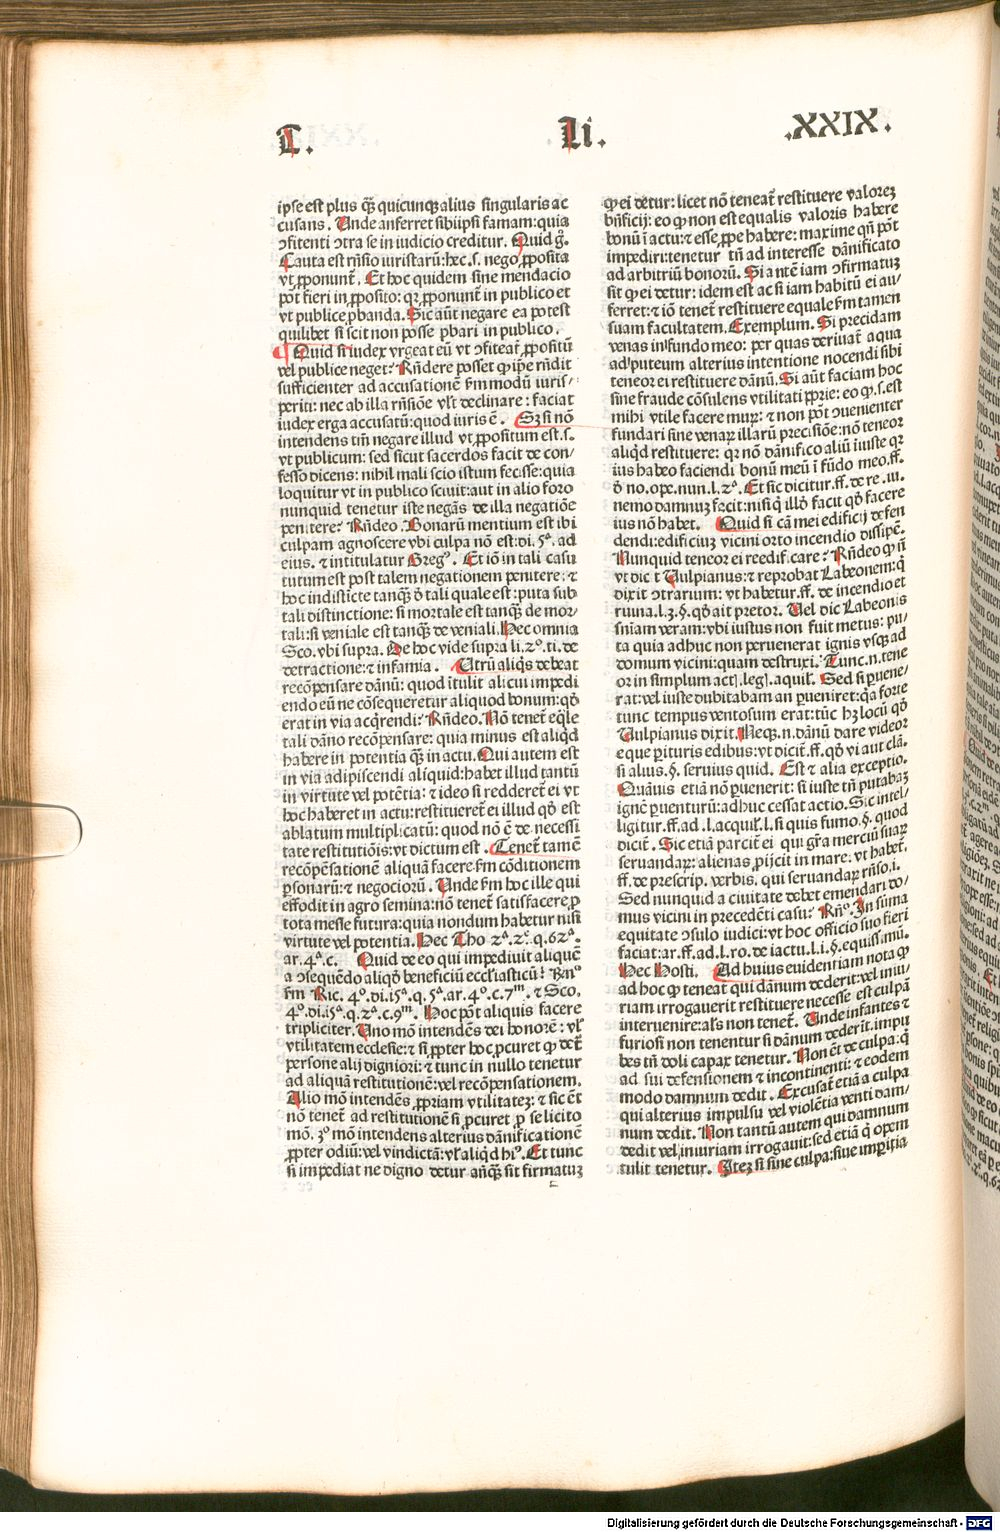 T. Li. .XXIX.
ipse est plus qȝ quicunqȝ alius singularis ac
cusans. Unde anferret sibiipsi famam: quia
ↄfitenti ↄtra se in iudicio creditur. Quid gͦ.
Cauta est rñsio iuristarū: hec .s. nego ꝓposita
vt ꝓponunt̄. Et hoc quidem sine mendacio
pōt fieri in ꝓposito: qꝛ ꝓponunt̄ in publico et
vt publice ꝓbanda. Sic aūt negare ea potest
quilibet si scit non posse ꝓbari in publico.
Quid si iudex vrgeat eū vt ↄfiteat̄ ꝓpositū
vel publice neget? Rñdere posset ꝙ ip̄e rñdit
sufficienter ad accusationē ẜm modū iuris
periti: nec ab illa rñsiōe vl̓t declinare: faciat
iudex erga accusatū: quod iuris ē. Sȝ si nō
intendens tm̄ negare illud vt ꝓpositum est .s.
vt publicum: sed sicut sacerdos facit de con/
fesso dicens: nihil mali scio istum fecisse: quia
loquitur vt in publico sciuit: aut in alio foro
nunquid tenetur iste negās de illa negatiōe
penitere? Rñdeo. Bonarū mentium est ibi
culpam agnoscere vbi culpa nō est: di. 5ª. ad
eius. ⁊ intitulatur Gregͦ. Et iō in tali casu
tutum est post talem negationem penitere: ⁊
hoc indisticte tanqȝ ō tali quale est: puta sub
tali distinctione: si mortale est tanqȝ de mor/
tali: si veniale est tanqȝ de veniali. Hec omnia
Sco. vbi supra. De hoc vide supra li. 2ͦ. ti. de
detractione: ⁊ infamia. Utrū aliqͥs debeat
recōpensare dānū: quod ītulit alicui impedi
endo eū ne cōsequeretur aliquod bonum: qd̓
erat in via acqͥrendi? Rñdeo. Nō tenet̄ eq̄le
tali dāno recōpensare: quia minus est aliqͥd
habere in potentia qȝ in actu. Qui autem est
in via adipiscendi aliquid: habet illud tantū
in virtute vel potētia: ⁊ ideo si redderet̄ ei vt
hoc haberet in actu: restitueret̄ ei illud qd̓ est
ablatum multiplicatū: quod nō ē de necessi
tate restitutiōis: vt dictum est. Tenet̄ tamē
recōpēsationē aliquā facere ẜm cōditionem
ꝑsonarū: ⁊ negociorū. Unde ẜm hoc ille qui
effodit in agro semina: nō tenet̄ satisfacere ꝓ
tota messe futura: quia nondum habetur nisi
virtute vel potentia. Hec Tho 2ª. 2ᵉ. q. 62ª.
ar. 4ª. c. Quid de eo qui impediuit aliquē
a ↄsequēdo aliqd̓ beneficiū eccl̓iasticū? Rñͦ
ẜm Ric. 4ͦ. di. i5ª. q. 5ª. ar. 4ͦ. c. 7ᵐ. ⁊ Sco.
4ͦ. di. i5ª. q. 2ª. c. 9ᵐ. Hoc pōt aliquis facere
tripliciter. Uno mō intendēs dei honorē: vl̓
vtilitatem ecclesie: ⁊ si ꝓpter hoc ꝓcuret ꝙ det̄
persone alij digniori: ⁊ tunc in nullo tenetur
ad aliquā restitutionē: vel recōpensationem.
Alio mō intendēs ꝓpriam vtilitateȝ: ⁊ sic ēt
nō tenet̄ ad restitutionē si ꝓcuret ꝓ se licito
mō. 3ͦ mō intendens alterius dānificationē
ꝓpter odiū: vel vindictā: vl̓ aliqͥd hiͦ. Et tunc
si impediat ne digno detur anqȝ sit firmatuȝ
ꝙ ei detur: licet nō teneat̄ restituere valoreȝ
bn̄ficij: eo ꝙ non est equalis valoris habere
bonū ī actu: ⁊ esse ꝓpe habere: maxime qn̄ pōt
impediri: tenetur tn̄ ad interesse dānificato
ad arbitriū bonorū. Si antē iam ↄfirmatuȝ
sit ꝙ ei detur: idem est ac si iam habitū ei au/
ferret: ⁊ iō tenet̄ restituere equale ẜm tamen
suam facultatem. Exemplum. Si precidam
venas in fundo meo: per quas deriuat̄ aqua
ad puteum alterius intentione nocendi sibi
teneor ei restituere dānū. Si aūt faciam hoc
sine fraude cōsulens vtilitati ꝓprie: eo ꝙ .s. est
mihi vtile facere muꝝ: ⁊ non pōt ↄuenienter
fundari sine venaꝝ illarū precisiōe: nō teneor
aliqͥd restituere: qꝛ nō dānifico aliū iniuste qꝛ
ius habeo faciendi bonū meū ī fūdo meo. ff.
ō no. ope. nun. l. 2ª. Et sic dicitur. ff. de re. iu.
nemo damnuȝ facit: nisi qͥ illō facit qd̓ facere
ius nō habet. Quid si cā mei edificij defen
dendi: edificiuȝ vicini orto incendio dissipē.
Nunquid teneor ei reedificare? Rñdeo ꝙ n̄
vt dicit Vulpianus: ⁊ reprobat Labeonem: q̄
dixit ↄtrarium: vt habetur. ff. de incendio et
ruina. l. 3. §. qd̓ ait pretor. Vel dic Labeonis
sn̄iam veram: vbi iustus non fuit metus: pu/
ta quia adhuc non peruenerat ignis vsqȝ ad
domum vicini: quam destruxi. Tunc .n. tene
or in simplum actj. legl. aquil̓. Sed si ꝑuene/
rat: vel iuste dubitabam an ꝑueniret: q̄a forte
tunc tempus ventosum erat: tūc hȝ locū qd̓
Vulpianus dixit. Neqȝ .n. dānū dare videor
eque perituris edibus: vt dicit̄. ff. qd̓ vi aut clā.
si alius. §. seruius quid. Est ⁊ alia exceptio.
Quāuis etiā nō ꝑuenerit: si iuste tn̄ putabaȝ
ignē ꝑuenturū: adhuc cessat actio. Sic intel/
ligitur. ff. ad. l. acquil̓. l. si quis fumo. §. quod
dicit̄. Sic etiā parcit̄ ei qui gr̄a merciū suaꝝ
seruandaꝝ: alienas ꝓijcit in mare. vt habet̄.
ff. de prescrip. verbis. qui seruandaꝝ rñso. i.
Sed nunquid a ciuitate debet emendari do/
mus vicini in precedēti casu? Rñͦ. In suma
equitate ↄsulo iudici: vt hoc officio suo fieri
faciat: ar. ff. ad. l. ro. de iactu. l. i. §. equiss. mū.
Hec Hosti. Ad huius euidentiam nota ꝙ
ad hoc ꝙ teneat̄ qui dānum dederit: vel iniu
riam irrogauerit restituere necesse est culpā
interuenire: al̓s non tenet̄. Unde infantes ⁊
furiosi non tenentur si dānum dederit. impu
bes tn̄ doli capax tenetur. Non ēt de culpa: q̄
ad sui defensionem ⁊ incontinenti: ⁊ eodem
modo damnum dedit. Excusat̄ etiā a culpa
qui alterius impulsu vel violētia venti dam/
num dedit. Non tantū autem qui damnum
dedit vel iniuriam irrogauit: sed etiā qͥ opem
tulit tenetur. Iteȝ si sine culpa: siue imꝑitia
Digitalisierung gefördert durch die Deutsche Forschungsgemeinschaft - DFG